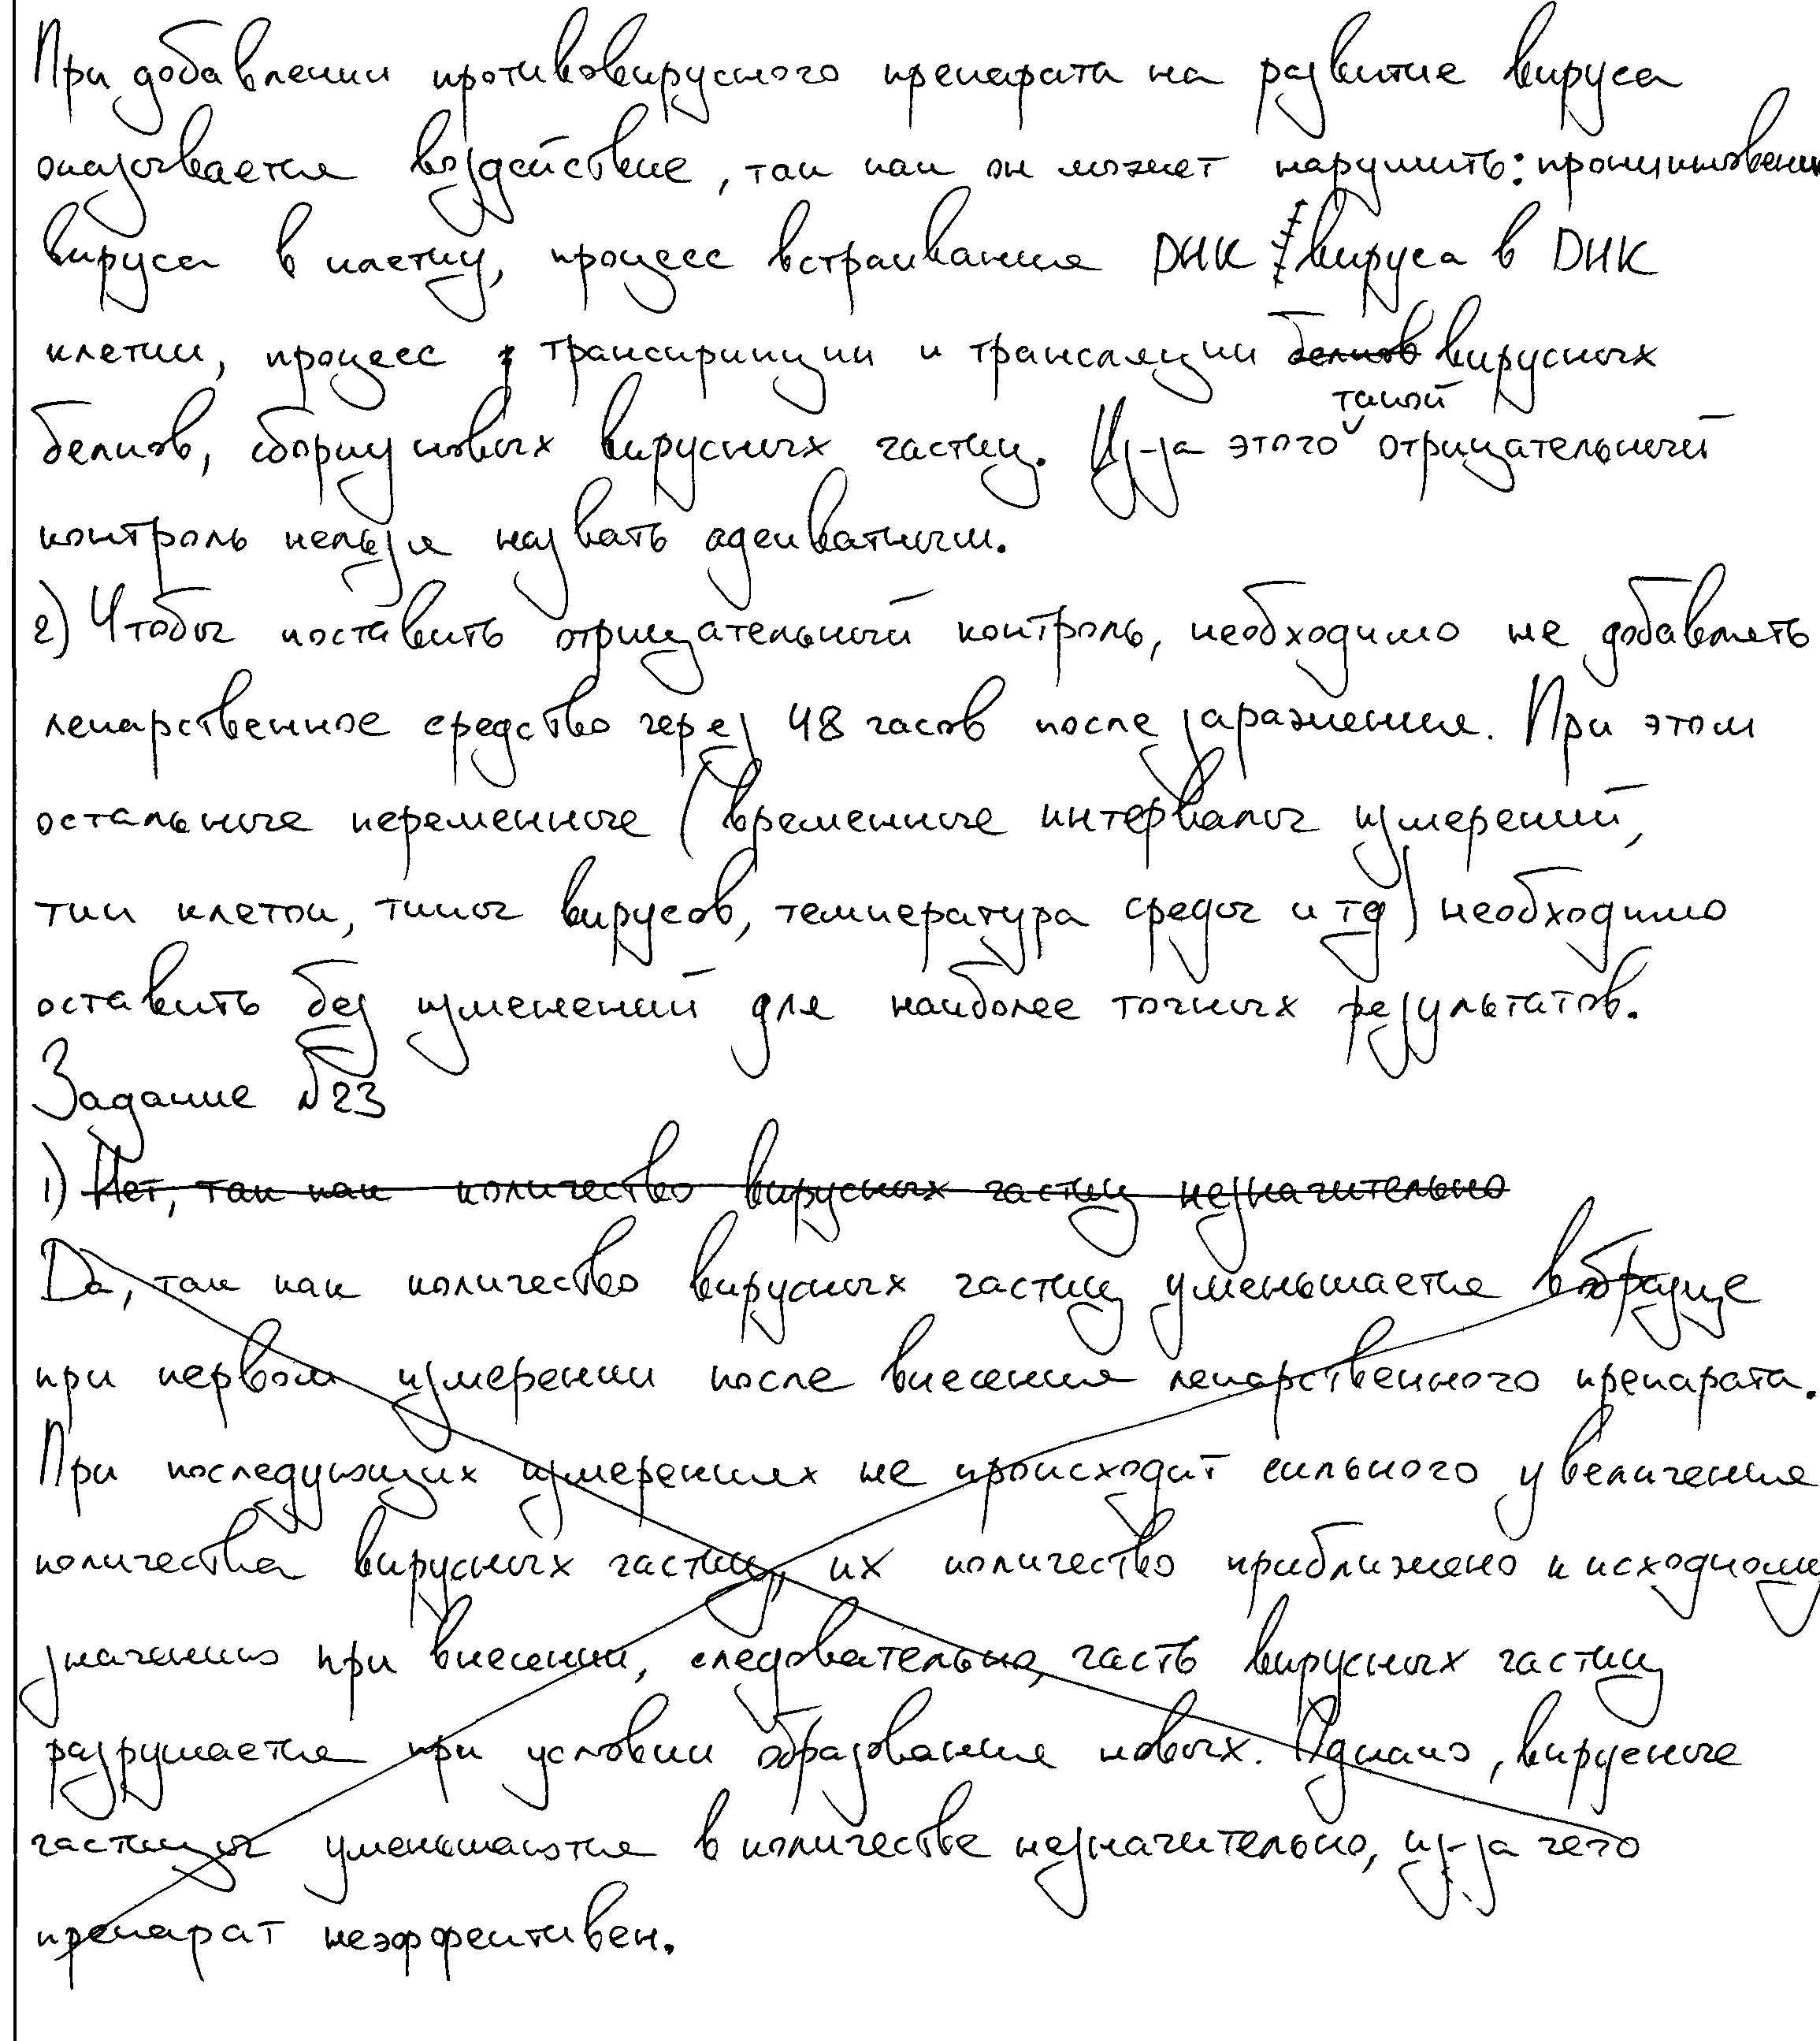 При добавлении противовирусного препарата на развитие вируса
оказывается воздействие, так как он может нарушить: проникновение
вируса в клетку, процесс встраивания ДНК вируса в ДНК
клетки, процесс транскрипции и трансляции белков вирусных
такой
белков, сборку новых вирусных частиц. Из-за этого отрицательный
контроль нельзя назвать адекватным.
2) Чтобы поставить отрицательный контроль, необходимо не добавлять
лекарственное средство через 48 часов после заражения. При этом
остальные переменные (временные интервалы измерений,
тип клетки, типы вирусов, температура среды и тд) необходимо
оставить без изменений для наиболее точных результатов.
Задание №23
1) Нет, так как количество вирусных частиц незначительно
Да, так как количество вирусных частиц уменьшается в образце
при первом измерении после внесения лекарственного препарата.
При последующих измерениях не происходит сильного увеличения
количества вирусных частиц, их количество приближено к исходному
значению при внесении, следовательно, часть вирусных частиц
разрушается при условии образования новых. Однако, вирусные
частицы уменьшаются в количестве незначительно, из-за чего
препарат неэффективен.